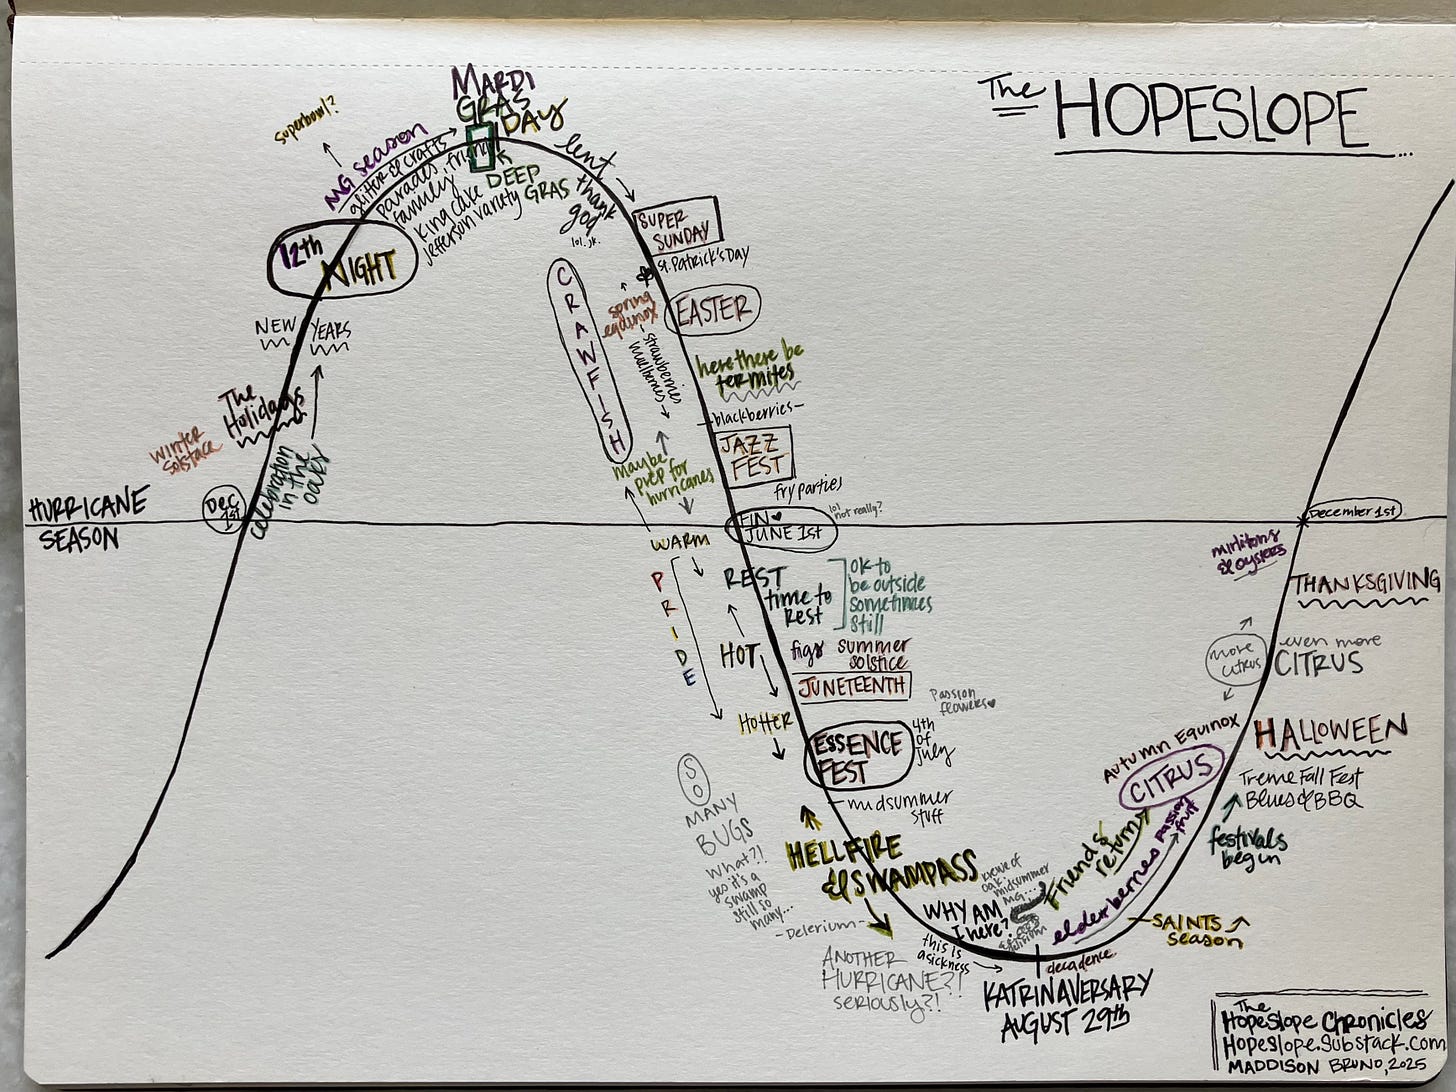 The HOPESLOPE...
superbowl?
MARDI
GRAS
DAY
MG season
glitter & crafts
parades, friends
family
King cake
Jefferson variety
DEEP
GRAS
lent
thank
god
lol. jk.
12th
NIGHT
NEW YEARS
The
Holidays
winter
solstace
celebration
in the
oaks
Dec
1st
HURRICANE
SEASON
SUPER
SUNDAY
St. Patrick's Day
spring
equinox
EASTER
CRAWFISH
strawberries
mulberries
here there be
termites
-blackberries-
JAZZ
FEST
fry parties
maybe
prep for
hurricanes
FIN ♥
JUNE 1st
lol
not really?
WARM
PRIDE
REST
time to
rest
OK to
be outside
sometimes
still
HOT
figs
summer
solstice
JUNETEENTH
Passion
flowers ♥
HOTTER
ESSENCE
FEST
4th
of
July
-midsummer
stuff
SO
MANY
BUGS
what?!
yes it's a
swamp
still so
many...
HELLFIRE
& SWAMPASS
-Delerium-
ANOTHER
HURRICANE?!
seriously?!
WHY AM
I here?
this is
a sickness
krewe of
oak
midsummer
MG...
decadence
KATRINAVERSARY
AUGUST 29th
Friends
return
elderberries
passion
fruit
-SAINTS
season
festivals
begin
Treme Fall Fest
Blues & BBQ
CITRUS
Autumn Equinox
HALLOWEEN
more
citrus
even more
CITRUS
THANKSGIVING
mirlitons
& oysters
December 1st
The
Hopeslope Chronicles
Hopeslope.Substack.com
MADDISON BRUNO, 2025